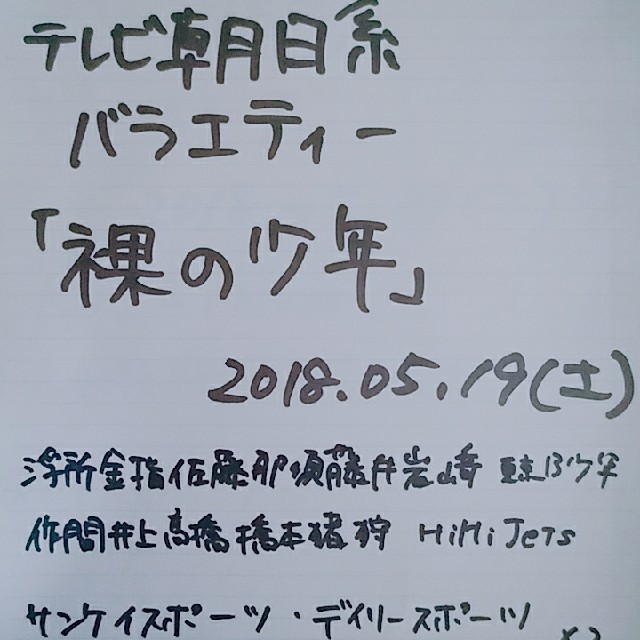 テレビ朝日系
バラエティー
「裸の少年」
2018.05.19(土)
浮所金指佐藤那須藤井岩﨑 東京B少年
作間井上高橋橋本猪狩 HiHiJets
サンケイスポーツ・デイリースポーツ